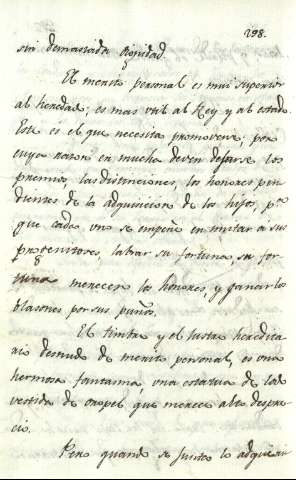 298.
sin demasiada rigidad.
El merito personal es mui superior
al heredado; es mas util al Rey y al estado.
Este es el que necesita promoverse; por
cuya razon en mucha deven dejarse los
premios, las distinciones, los honores pen
dientes de la adquisicion de los hijos, pa
que cada uno se empeñe en imitar a sus
progenitores, labrar su fortuna, su for
tuna merecer los honores, y ganar los
blasones por sus puños.
El timbre y el lustre heredita
rio desnudo de merito personal, es una
hermosa fantasma una estatua de
vestida de oropel que merece alto despre
cio.
Pero quando se junta lo adquiri